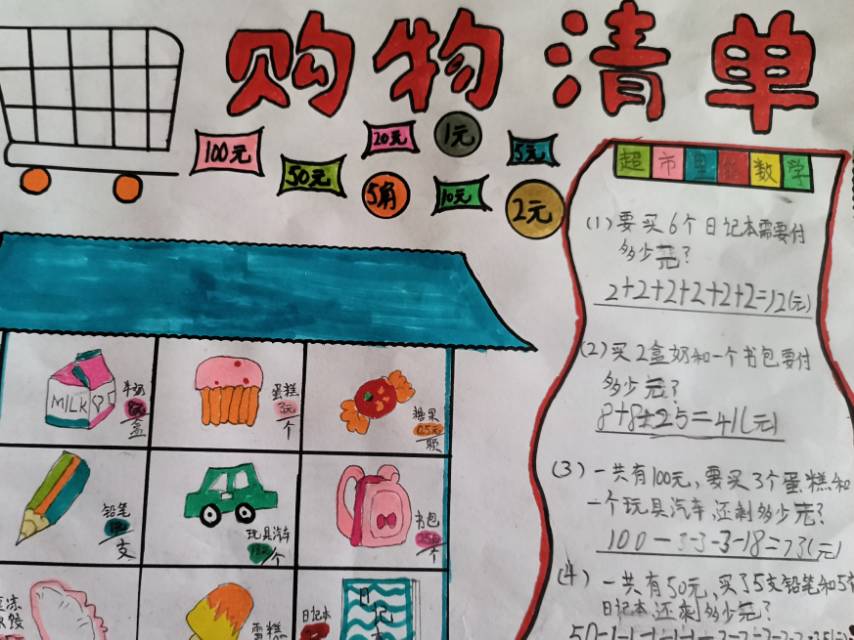 购物清单
100元
50元
20元
5角
1元
10元
5元
2元
超市里的数学
(1)要买6个日记本需要付
多少元?
2+2+2+2+2+2=12(元)
(2)买2盒奶和一个书包要付
多少元?
8+8+25=41(元)
(3)一共有100元,要买3个蛋糕和
一个玩具汽车,还剩多少元?
100-3-3-3-18=73(元)
(4)一共有50元,买了5支铅笔和5
日记本,还剩多少元?
MILK
牛奶
盒
蛋糕
3元
个
糖果
0.5元
颗
铅笔
支
玩具汽车
个
书包
25元
个
日记本
日记